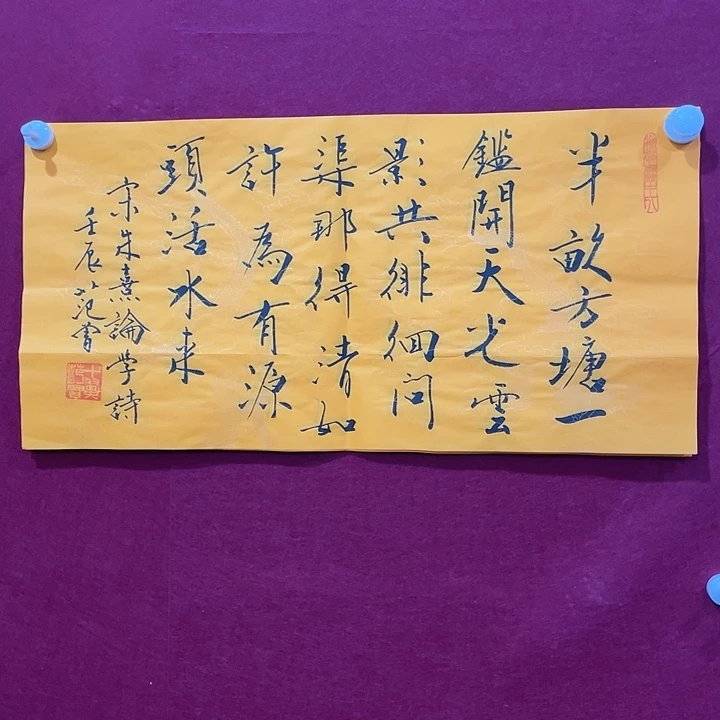 半畝方塘一
鑑開天光雲
影共徘徊問
渠那得清如
許為有源
頭活水來
宋朱熹論學詩
壬辰 范曾